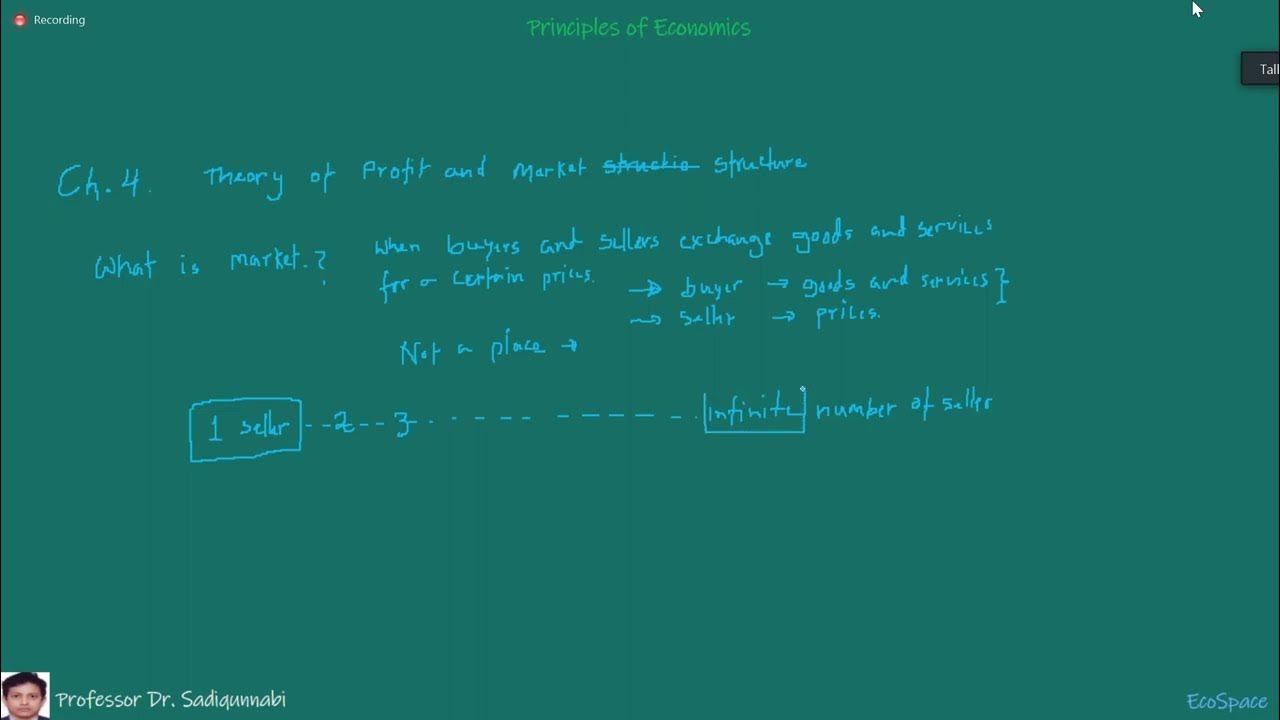 Recording
Principles of Economics
Tall
Ch. 4. Theory of Profit and Market structio structure
What is market.? When buyers and sellers exchange goods and services
for a certain prices.
→ buyer → goods and services }
→ seller → prices.
Not a place →
1 seller -- 2 -- 3 - . - - - - - - - - - - . infinite number of seller
Professor Dr. Sadiqunnabi
EcoSpace